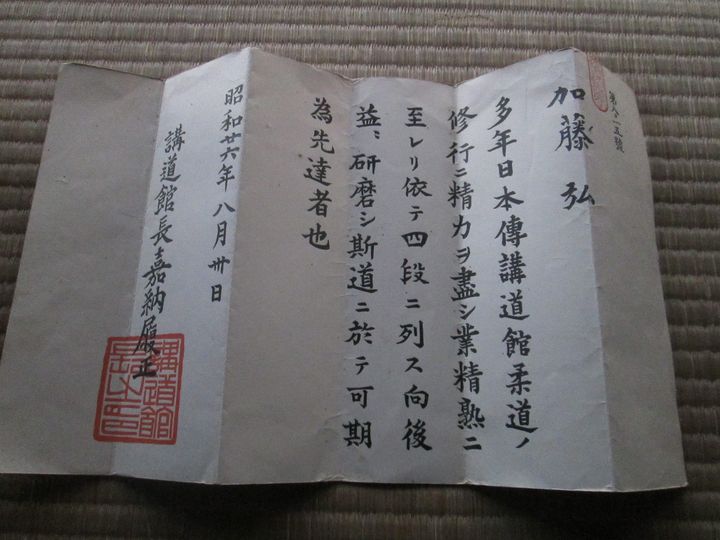 加藤弘
多年日本傳講道館柔道ノ
修行ニ精力ヲ盡シ業精熟ニ
至レリ依テ四段ニ列ス向後
益〻研磨シ斯道ニ於テ可期
為先達者也
昭和廿六年八月卅日
講道館長嘉納履正
講道館長之印